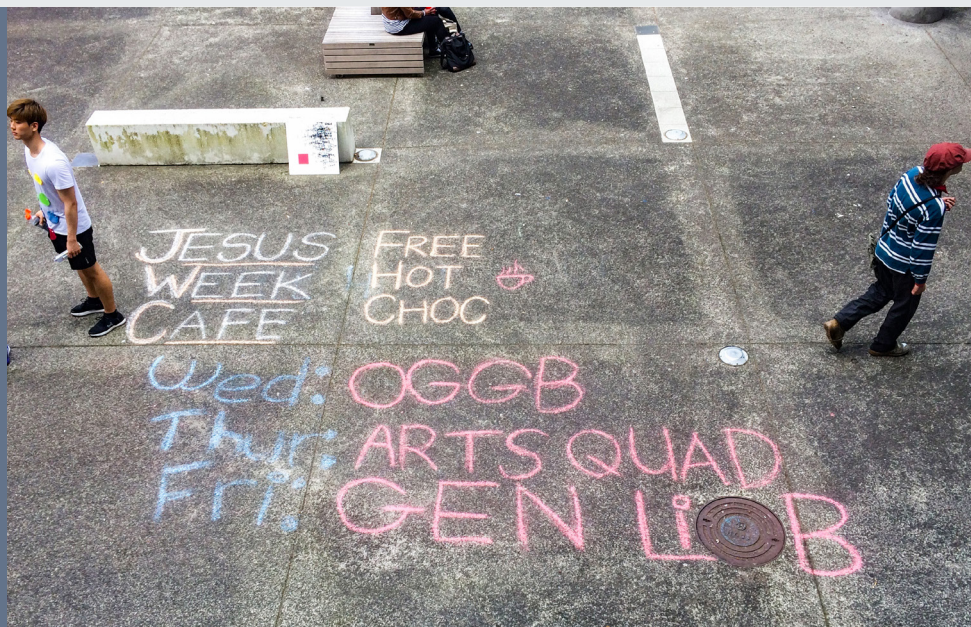 JESUS
WEEK
CAFE
FREE
HOT
CHOC
Wed: OGGB
Thur: ARTS QUAD
Fri: GEN LiB